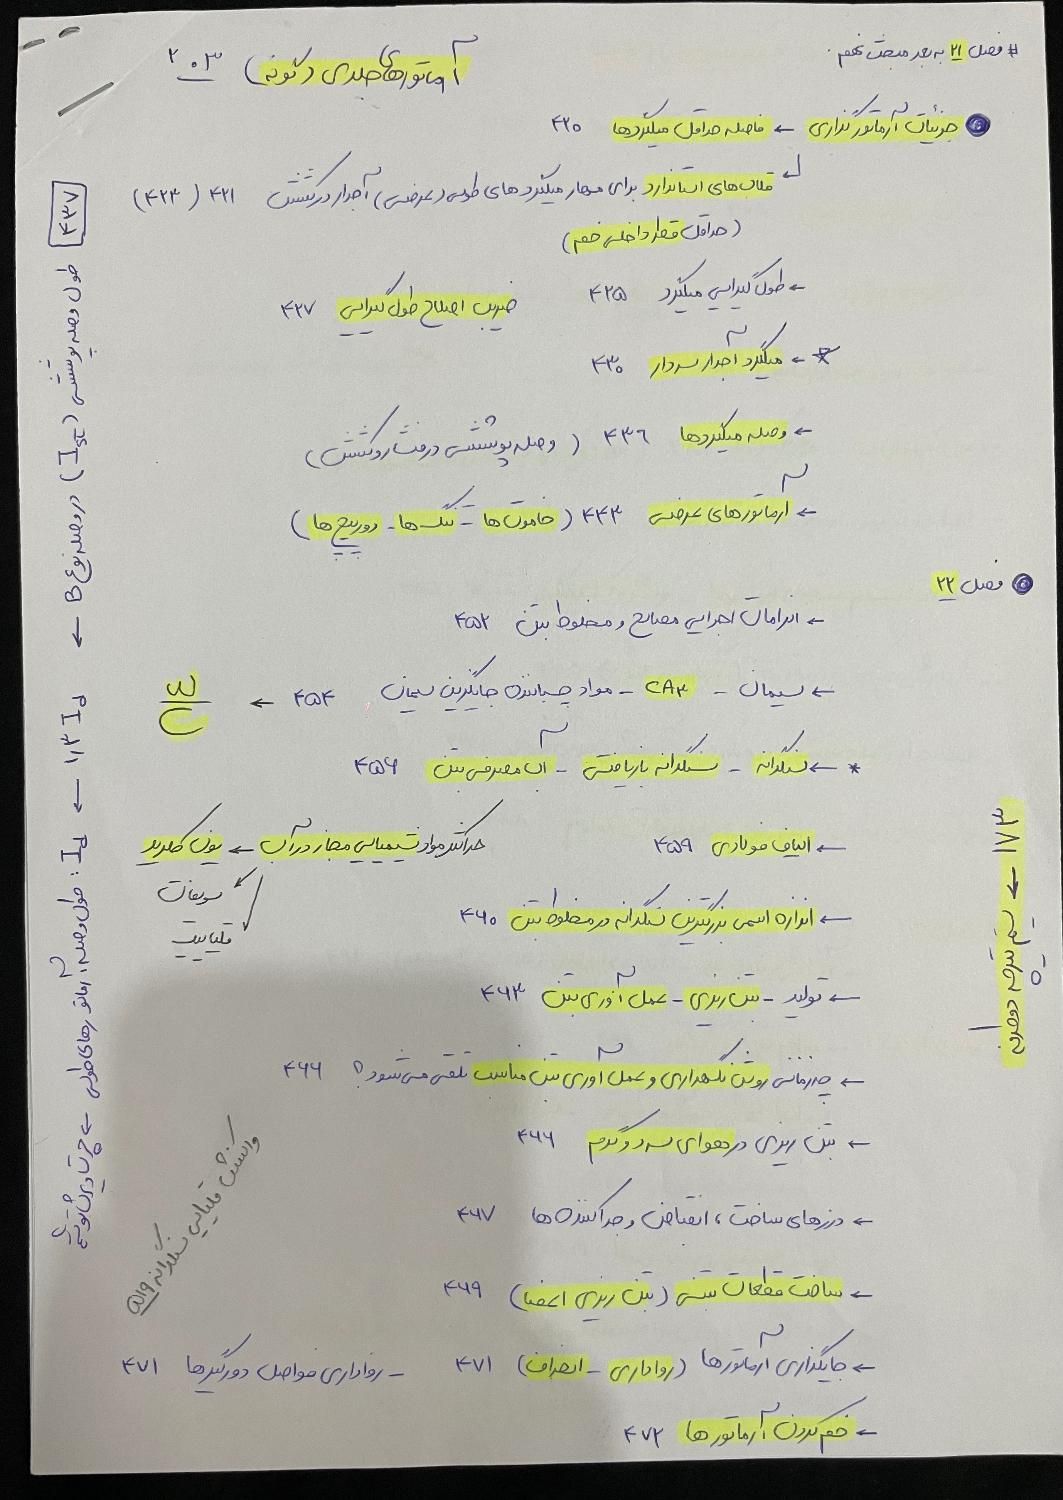 # فصل ۲۱ به بعد مبحث نهم
آرماتورهای جلدی (گونه) ۲۰۳
جزئیات آرماتورگذاری ← فاصله حداقل میلگردها ۴۲۰
قلاب‌های استاندارد برای مهار میلگردهای طولی (عرضی) آجدار در کشش ۴۲۱ (۴۲۳)
(حداقل قطر داخلی خم)
← طول گیرایی میلگرد ۴۲۵ ضریب اصلاح طول گیرایی ۴۲۷
* ← میلگرد آجدار سردار ۴۳۰
← وصله میلگردها ۴۳۶ (وصله پوششی در فشار و کشش)
← آرماتورهای عرضی ۴۴۳ (خاموت‌ها - تنگ‌ها - دورپیچ‌ها)
فصل ۲۲
← الزامات اجرایی مصالح و مخلوط بتن ۴۵۲
← سیمان - CA۳ - مواد چسباننده جایگزین سیمان ۴۵۴ ← W/C
* ← سنگدانه - سنگدانه بازیافتی - آب مصرفی بتن ۴۵۶
← الیاف فولادی ۴۵۹ حداکثر مواد شیمیایی مجاز در آب ← یون کلرید
سولفات
قلیاییت
← اندازه اسمی بزرگترین سنگدانه در مخلوط بتن ۴۶۰
← تولید - بتن ریزی - عمل آوری بتن ۴۶۳
← چه زمانی روش نگهداری و عمل آوری بتن مناسب تلقی می‌شود؟ ۴۶۶
← بتن ریزی در هوای سرد و گرم ۴۶۶
← درزهای ساخت، انقباض و جداکننده‌ها ۴۶۷
← ساخت قطعات بتنی (بتن ریزی اعضا) ۴۶۹
← جایگذاری آرماتورها (رواداری - انحراف) ۴۷۱ - رواداری فواصل دورگیرها ۴۷۱
← خم کردن آرماتورها ۴۷۲
۴۳۷ طول وصله پوششی (lst) در وصله نوع B ← ۱٫۳ld ← ld : طول وصله، آرماتورهای طولی ←
۱۷۳ ← سیستم تیرچه دوطرفه
واکنش قلیایی سنگدانه ۵۱۹